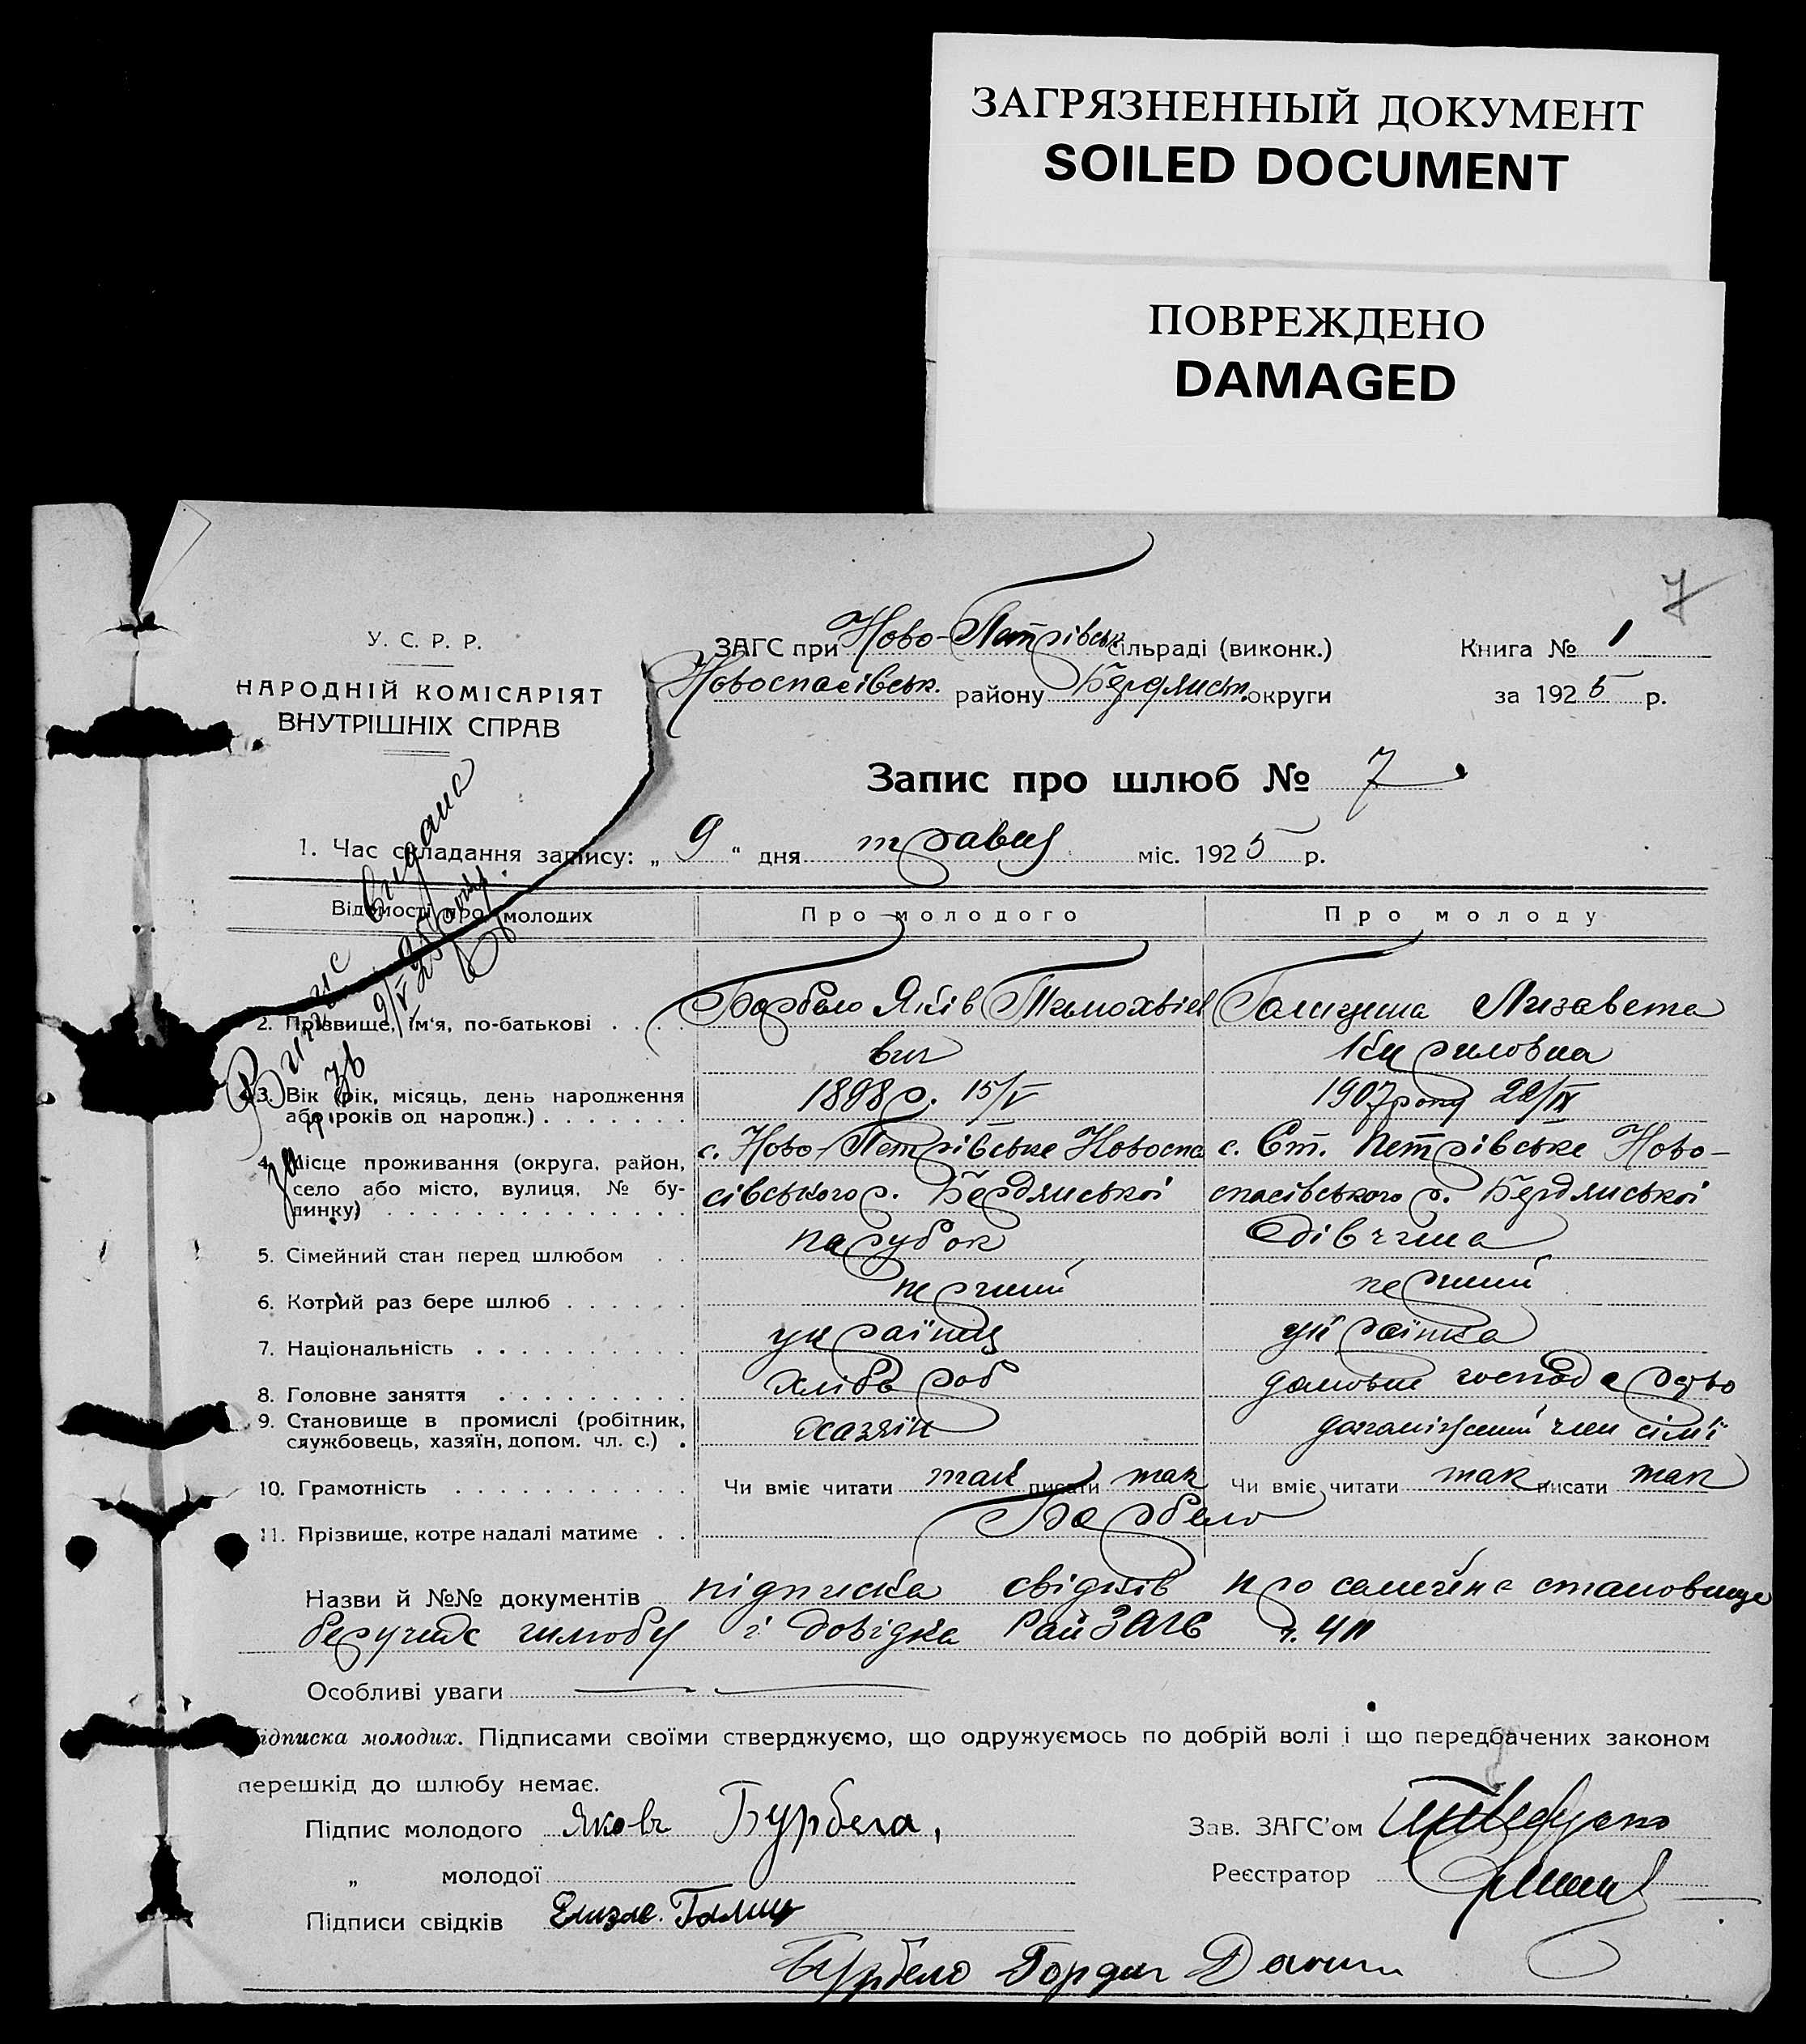 ЗАГРЯЗНЕННЫЙ ДОКУМЕНТ
SOILED DOCUMENT
ПОВРЕЖДЕНО
DAMAGED
7
У. С. Р. Р.
НАРОДНІЙ КОМІСАРІЯТ
ВНУТРІШНІХ СПРАВ
ЗАГС при Ново-Петрівськ. сільраді (виконк.)
Новоспасівськ. району Бердянськ. округи
Книга № 1
за 1925 р.
Запис про шлюб № 7
Випис видана
9/V 25 року
1. Час складання запису: „ 9 “ дня травня міс. 1925 р.
Відомості про молодих Про молодого Про молоду
2. Прізвище, ім'я, по-батькові . . . . Борбело Яків Тимохвіє Галицина Лизавета
вич Кириловна
3. Вік (рік, місяць, день народження 1898 р. 15/V 1907 року 22/IX
або років од народж.) . . . . . . .
4. Місце проживання (округа, район, с. Ново-Петрівське Новоспа с. Ст. Петрівське Ново-
село або місто, вулиця, № бу- сівського р. Бердянської спасівського р. Бердянської
динку) . . . . . . . . . . . . . .
5. Сімейний стан перед шлюбом . . парубок дівчина
6. Котрий раз бере шлюб . . . . . . перший перший
7. Національність . . . . . . . . . . українц українка
8. Головне заняття . . . . . . . . . хлібороб домовне господарство
9. Становище в промислі (робітник, хазяїн допоміжний член сім'ї
службовець, хазяїн, допом. чл. с.) .
10. Грамотність . . . . . . . . . . . Чи вміє читати так писати так Чи вміє читати так писати так
11. Прізвище, котре надалі матиме . . Борбело
Назви й №№ документів підписка свідків про сімейне становище
беручих шлюбу і довідка РайЗАГС ч.
Особливі уваги
Підписка молодих. Підписами своїми стверджуємо, що одружуємось по добрій волі і що передбачених законом
перешкід до шлюбу немає.
Підпис молодого Яковъ Бурбела, Зав. ЗАГС'ом
„ молодої Реєстратор
Підписи свідків Елизав. Галиц
Бурбело Гордій